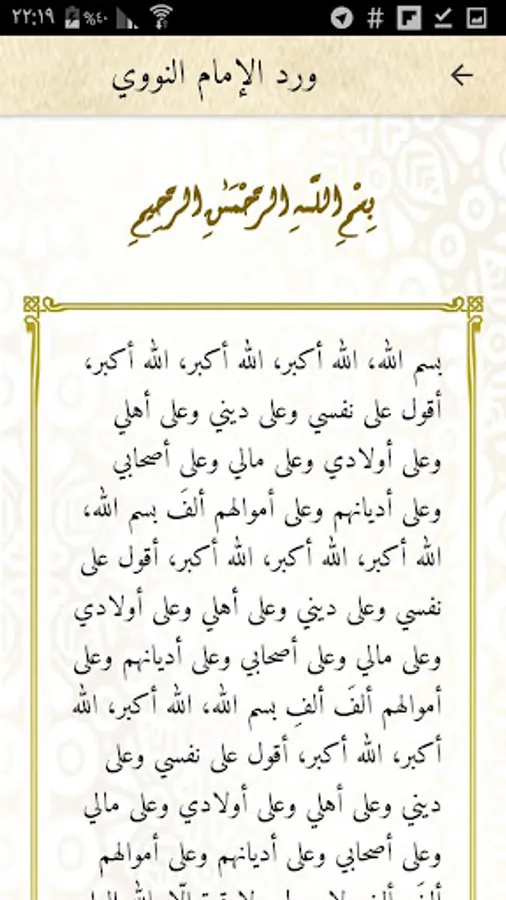 ٢٢:١٩ %٤٠
ورد الإمام النووي
بِسْمِ اللَّهِ الرَّحْمَٰنِ الرَّحِيمِ
بسم الله، الله أكبر، الله أكبر، الله أكبر،
أقول على نفسي وعلى ديني وعلى أهلي
وعلى أولادي وعلى مالي وعلى أصحابي
وعلى أديانهم وعلى أموالهم ألفَ بسم الله،
الله أكبر، الله أكبر، الله أكبر، أقول على
نفسي وعلى ديني وعلى أهلي وعلى أولادي
وعلى مالي وعلى أصحابي وعلى أديانهم وعلى
أموالهم ألفَ ألفِ بسم الله، الله أكبر، الله
أكبر، الله أكبر، أقول على نفسي وعلى
ديني وعلى أهلي وعلى أولادي وعلى مالي
وعلى أصحابي وعلى أديانهم وعلى أموالهم